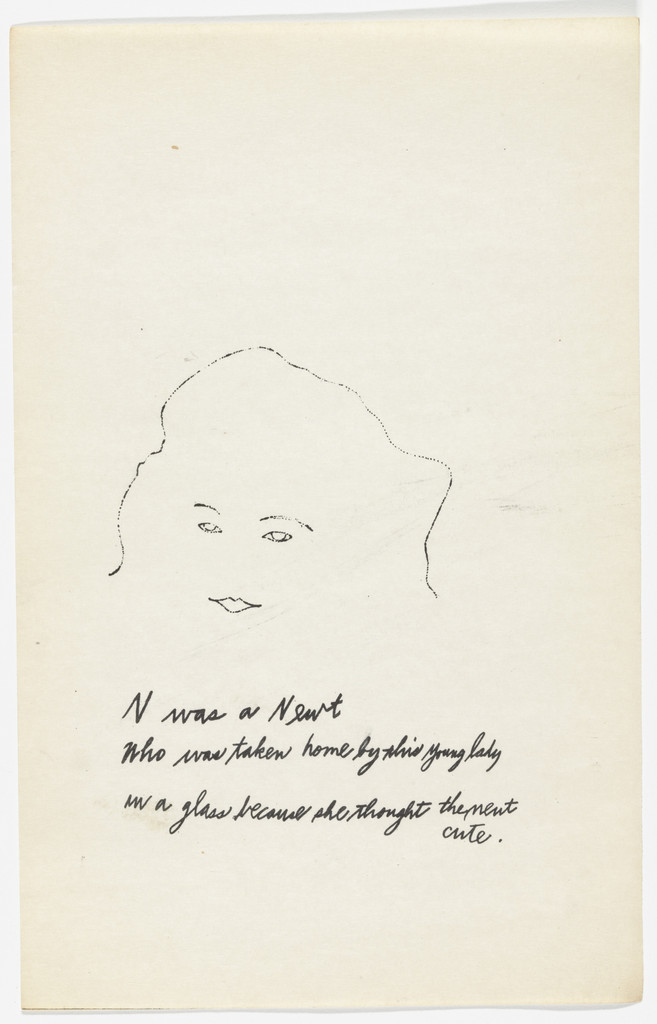 N was a Newt
Who was taken home by this young lady
in a glass because she thought the newt
cute.